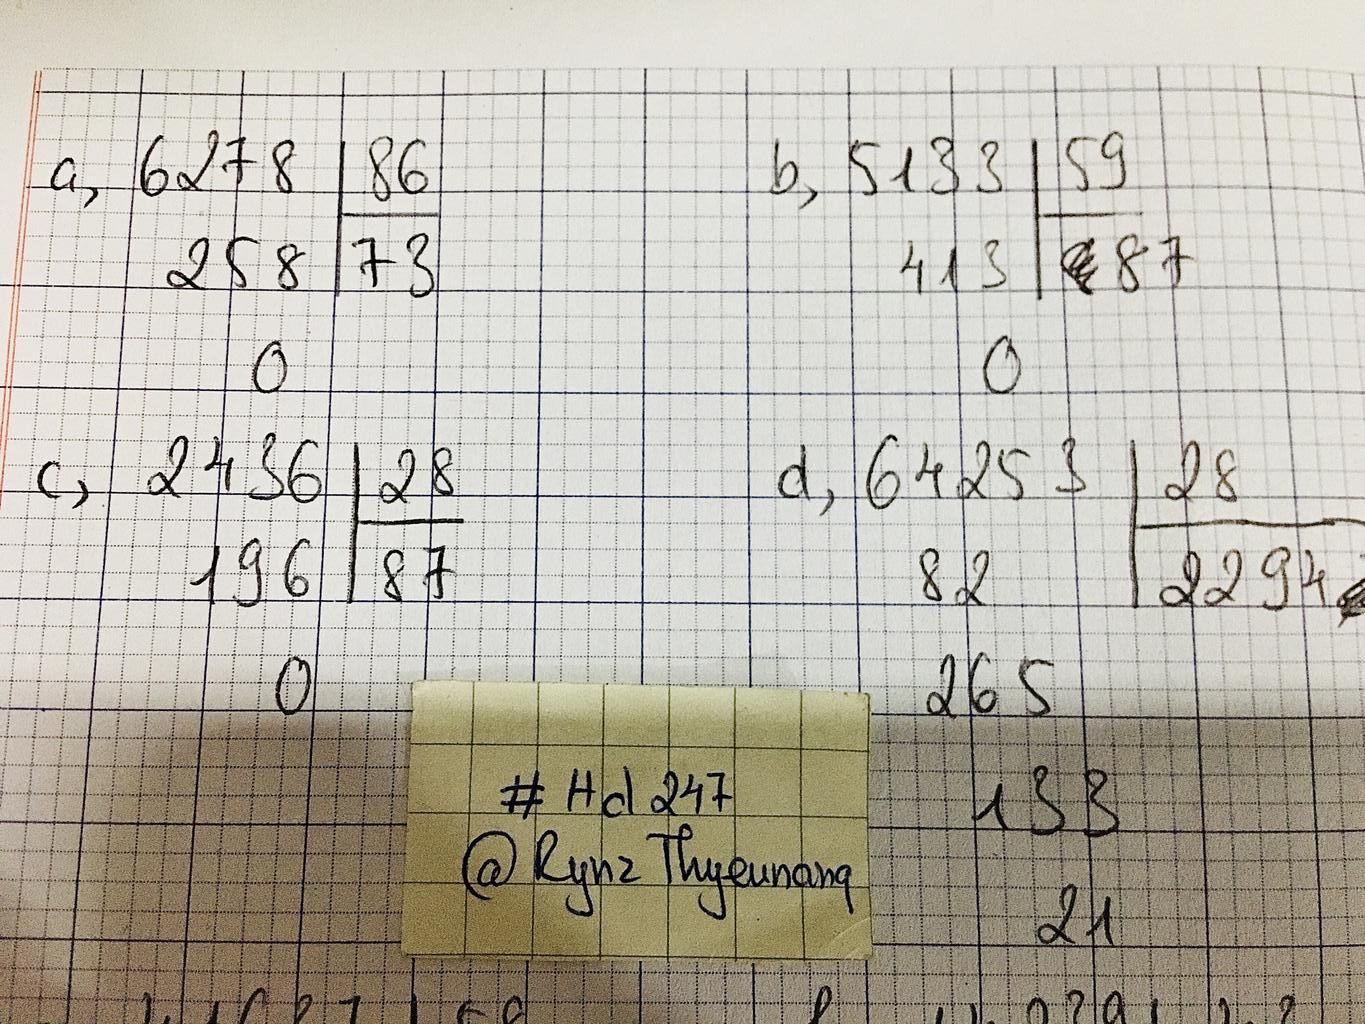 a, 6278 | 86
258 | 73
0
b, 5133 | 59
413 | 87
0
c, 2436 | 28
196 | 87
0
d, 64253 | 28
82 | 2294
265
133
21
# Hd 247
@ Rynz Thyeunang